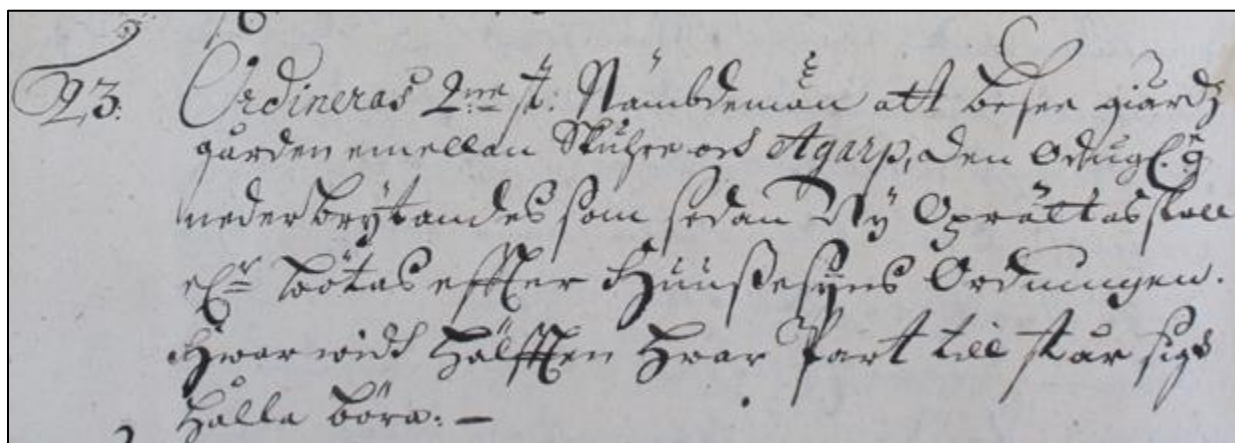 23. Ordineras 2ne st: Nämbdemän att besee giärdz
gården emellan Skuhre och Agarp, den Odugl.e
nederbrytandes som sedan Ny Oprättas skall
ell.r bötas effter Huusesyns Ordningen.
Hwar widh Hälfften Hwar Part till står sigh
hålla böra. —